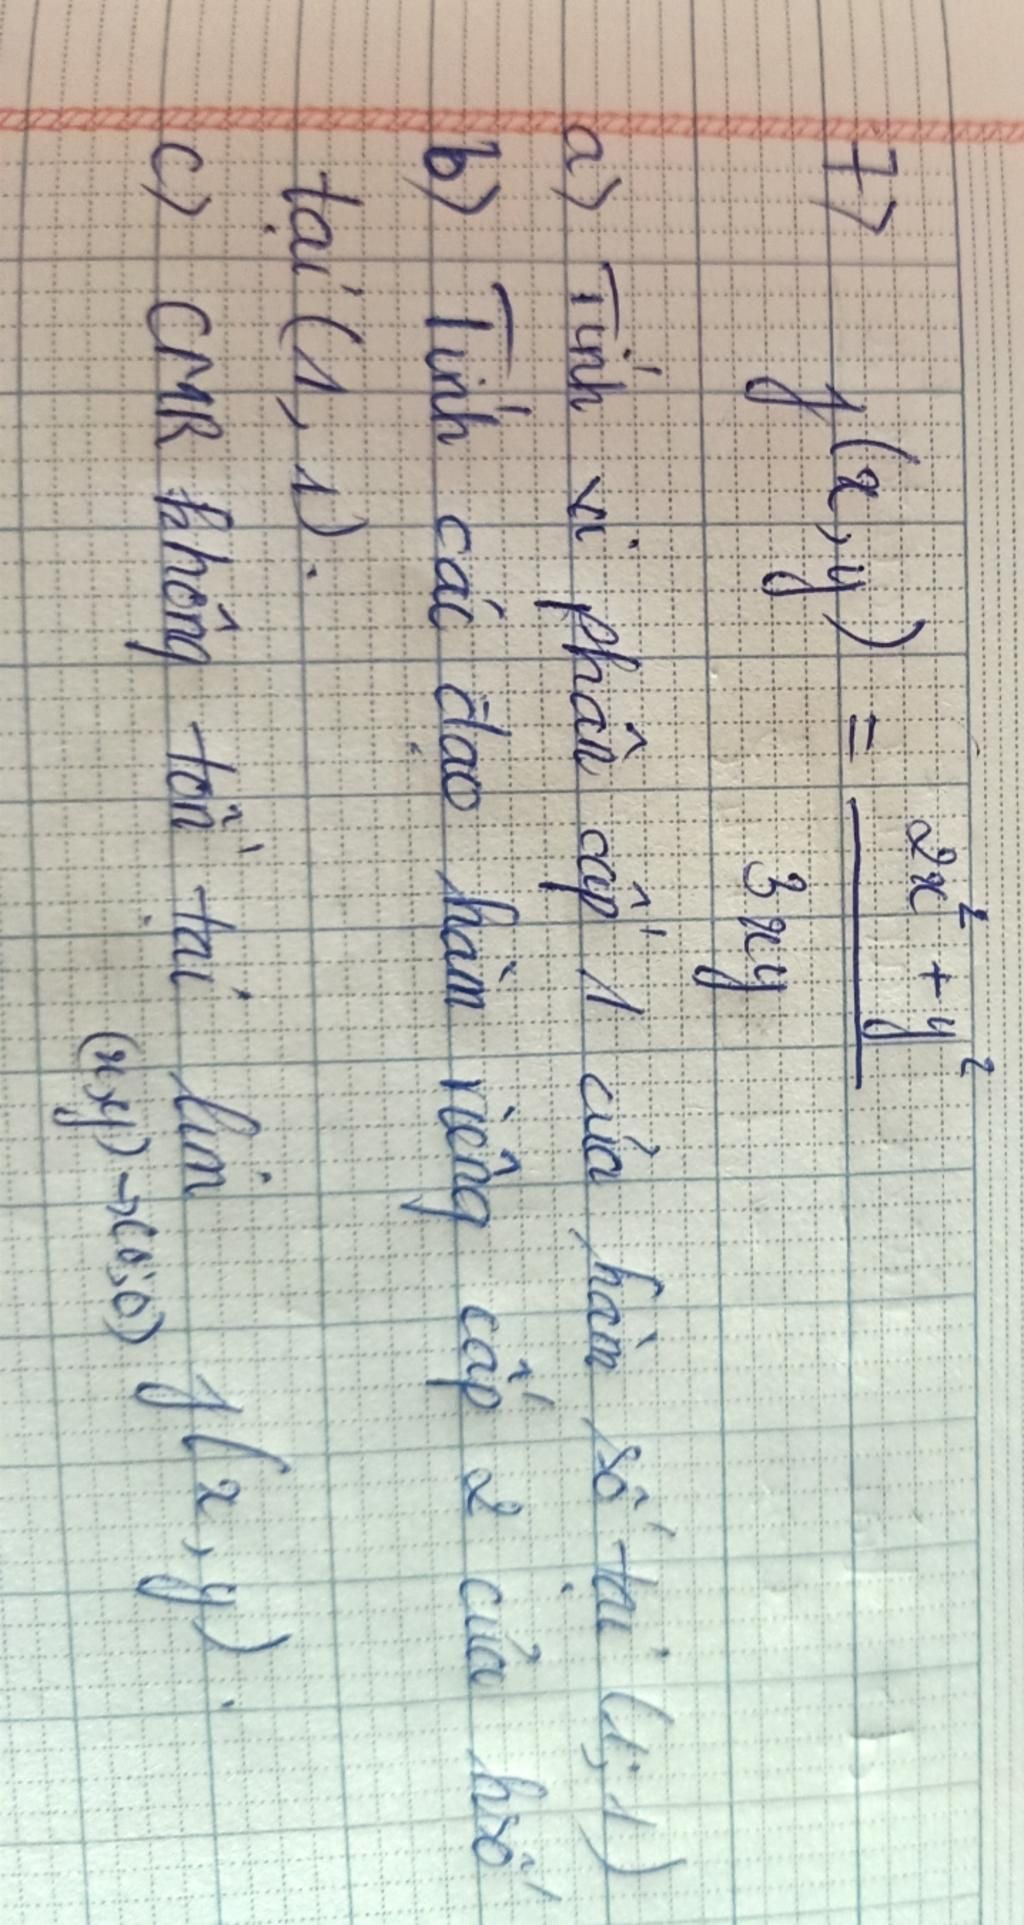 7>
f(x,y) = 2x² + y²
3xy
a) Tính vi phân cấp 1 của hàm số tại (1;1)
b) Tính các đạo hàm riêng cấp 2 của hsố
tại (1,1).
c) CMR không tồn tại lim f(x,y).
(x,y)→(0;0)